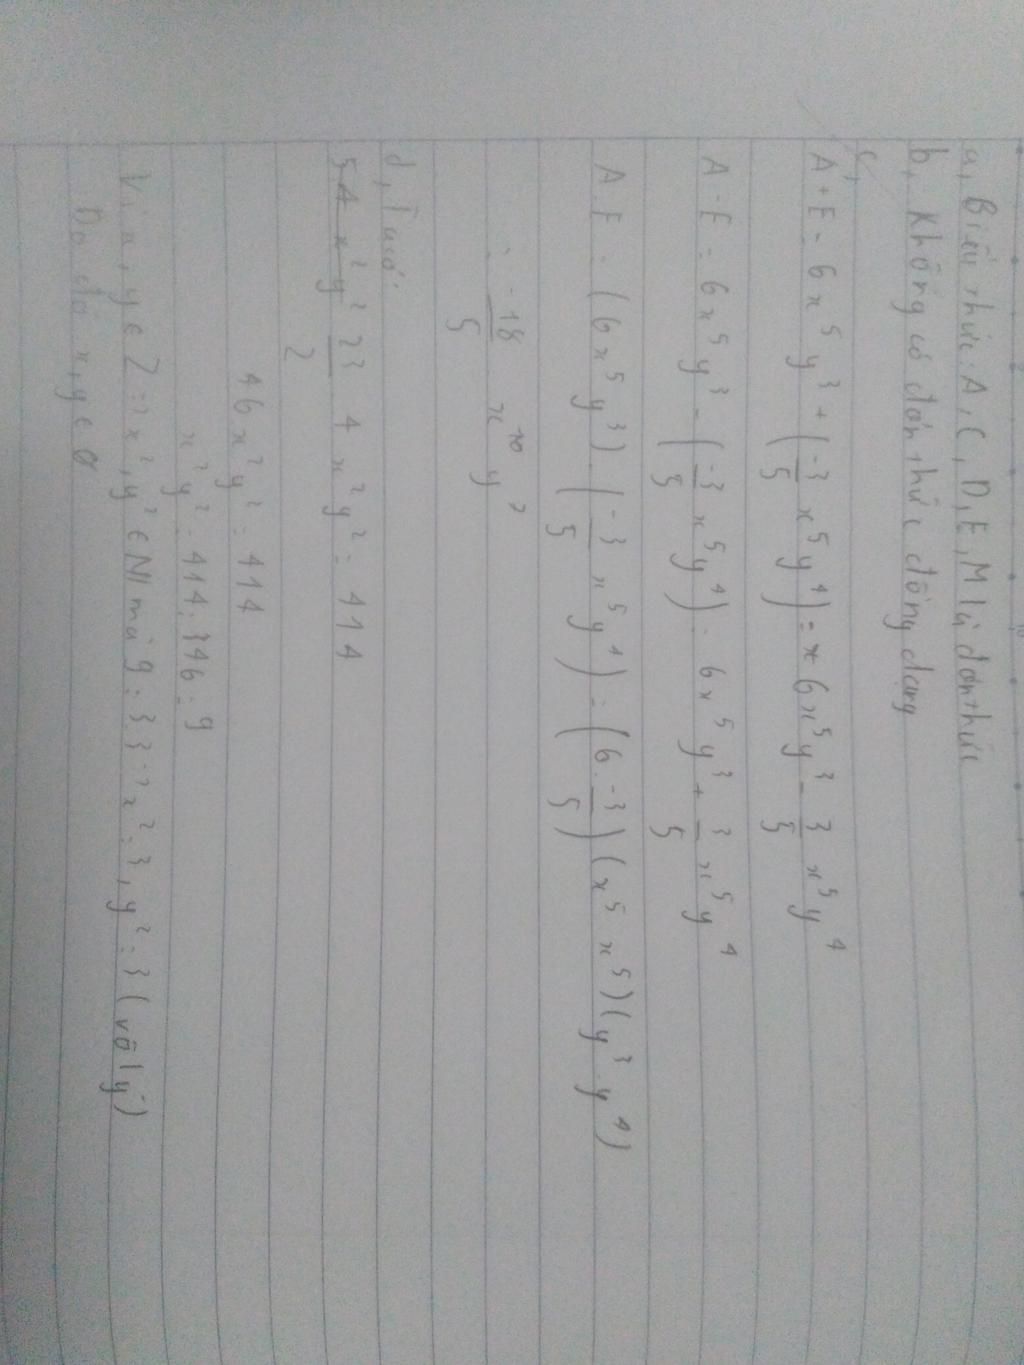 a, Biểu thức A, C, D, E, M là đơn thức
b, Không có đơn thức đồng dạng
c,
A + E = 6x⁵y³ + (-3/5 x⁵y⁴) = 6x⁵y³ - 3/5 x⁵y⁴
A - E = 6x⁵y³ - (-3/5 x⁵y⁴) = 6x⁵y³ + 3/5 x⁵y⁴
A.E = (6x⁵y³).(-3/5 x⁵y⁴) = (6.-3/5)(x⁵x⁵)(y³.y⁴)
= -18/5 x¹⁰y⁷
d, Ta có:
x²y² 23/2 4 x²y² = 414
46x²y² = 414
x²y² = 414:46 = 9
Vì x, y ∈ Z => x², y² ∈ N mà 9 = 3.3 => x² = 3, y² = 3 (vô lý)
Do đó x, y ∈ ∅